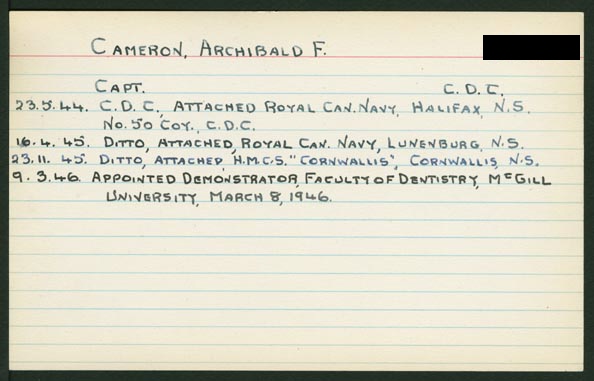 CAMERON, ARCHIBALD F.
CAPT. C.D.C.
23.5.44. C.D.C. ATTACHED ROYAL CAN. NAVY, HALIFAX, N.S.
No. 50 COY., C.D.C.
16.4.45. DITTO, ATTACHED, ROYAL CAN. NAVY, LUNENBURG, N.S.
23.11.45. DITTO, ATTACHED, H.M.C.S. "CORNWALLIS", CORNWALLIS, N.S.
9.3.46. APPOINTED DEMONSTRATOR, FACULTY OF DENTISTRY, McGILL
UNIVERSITY, MARCH 8, 1946.